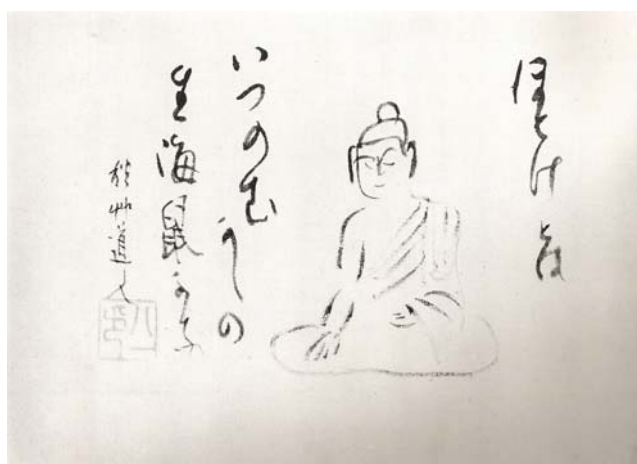 ほとけ
いつのむかしの
生海鼠かな
秋艸道人